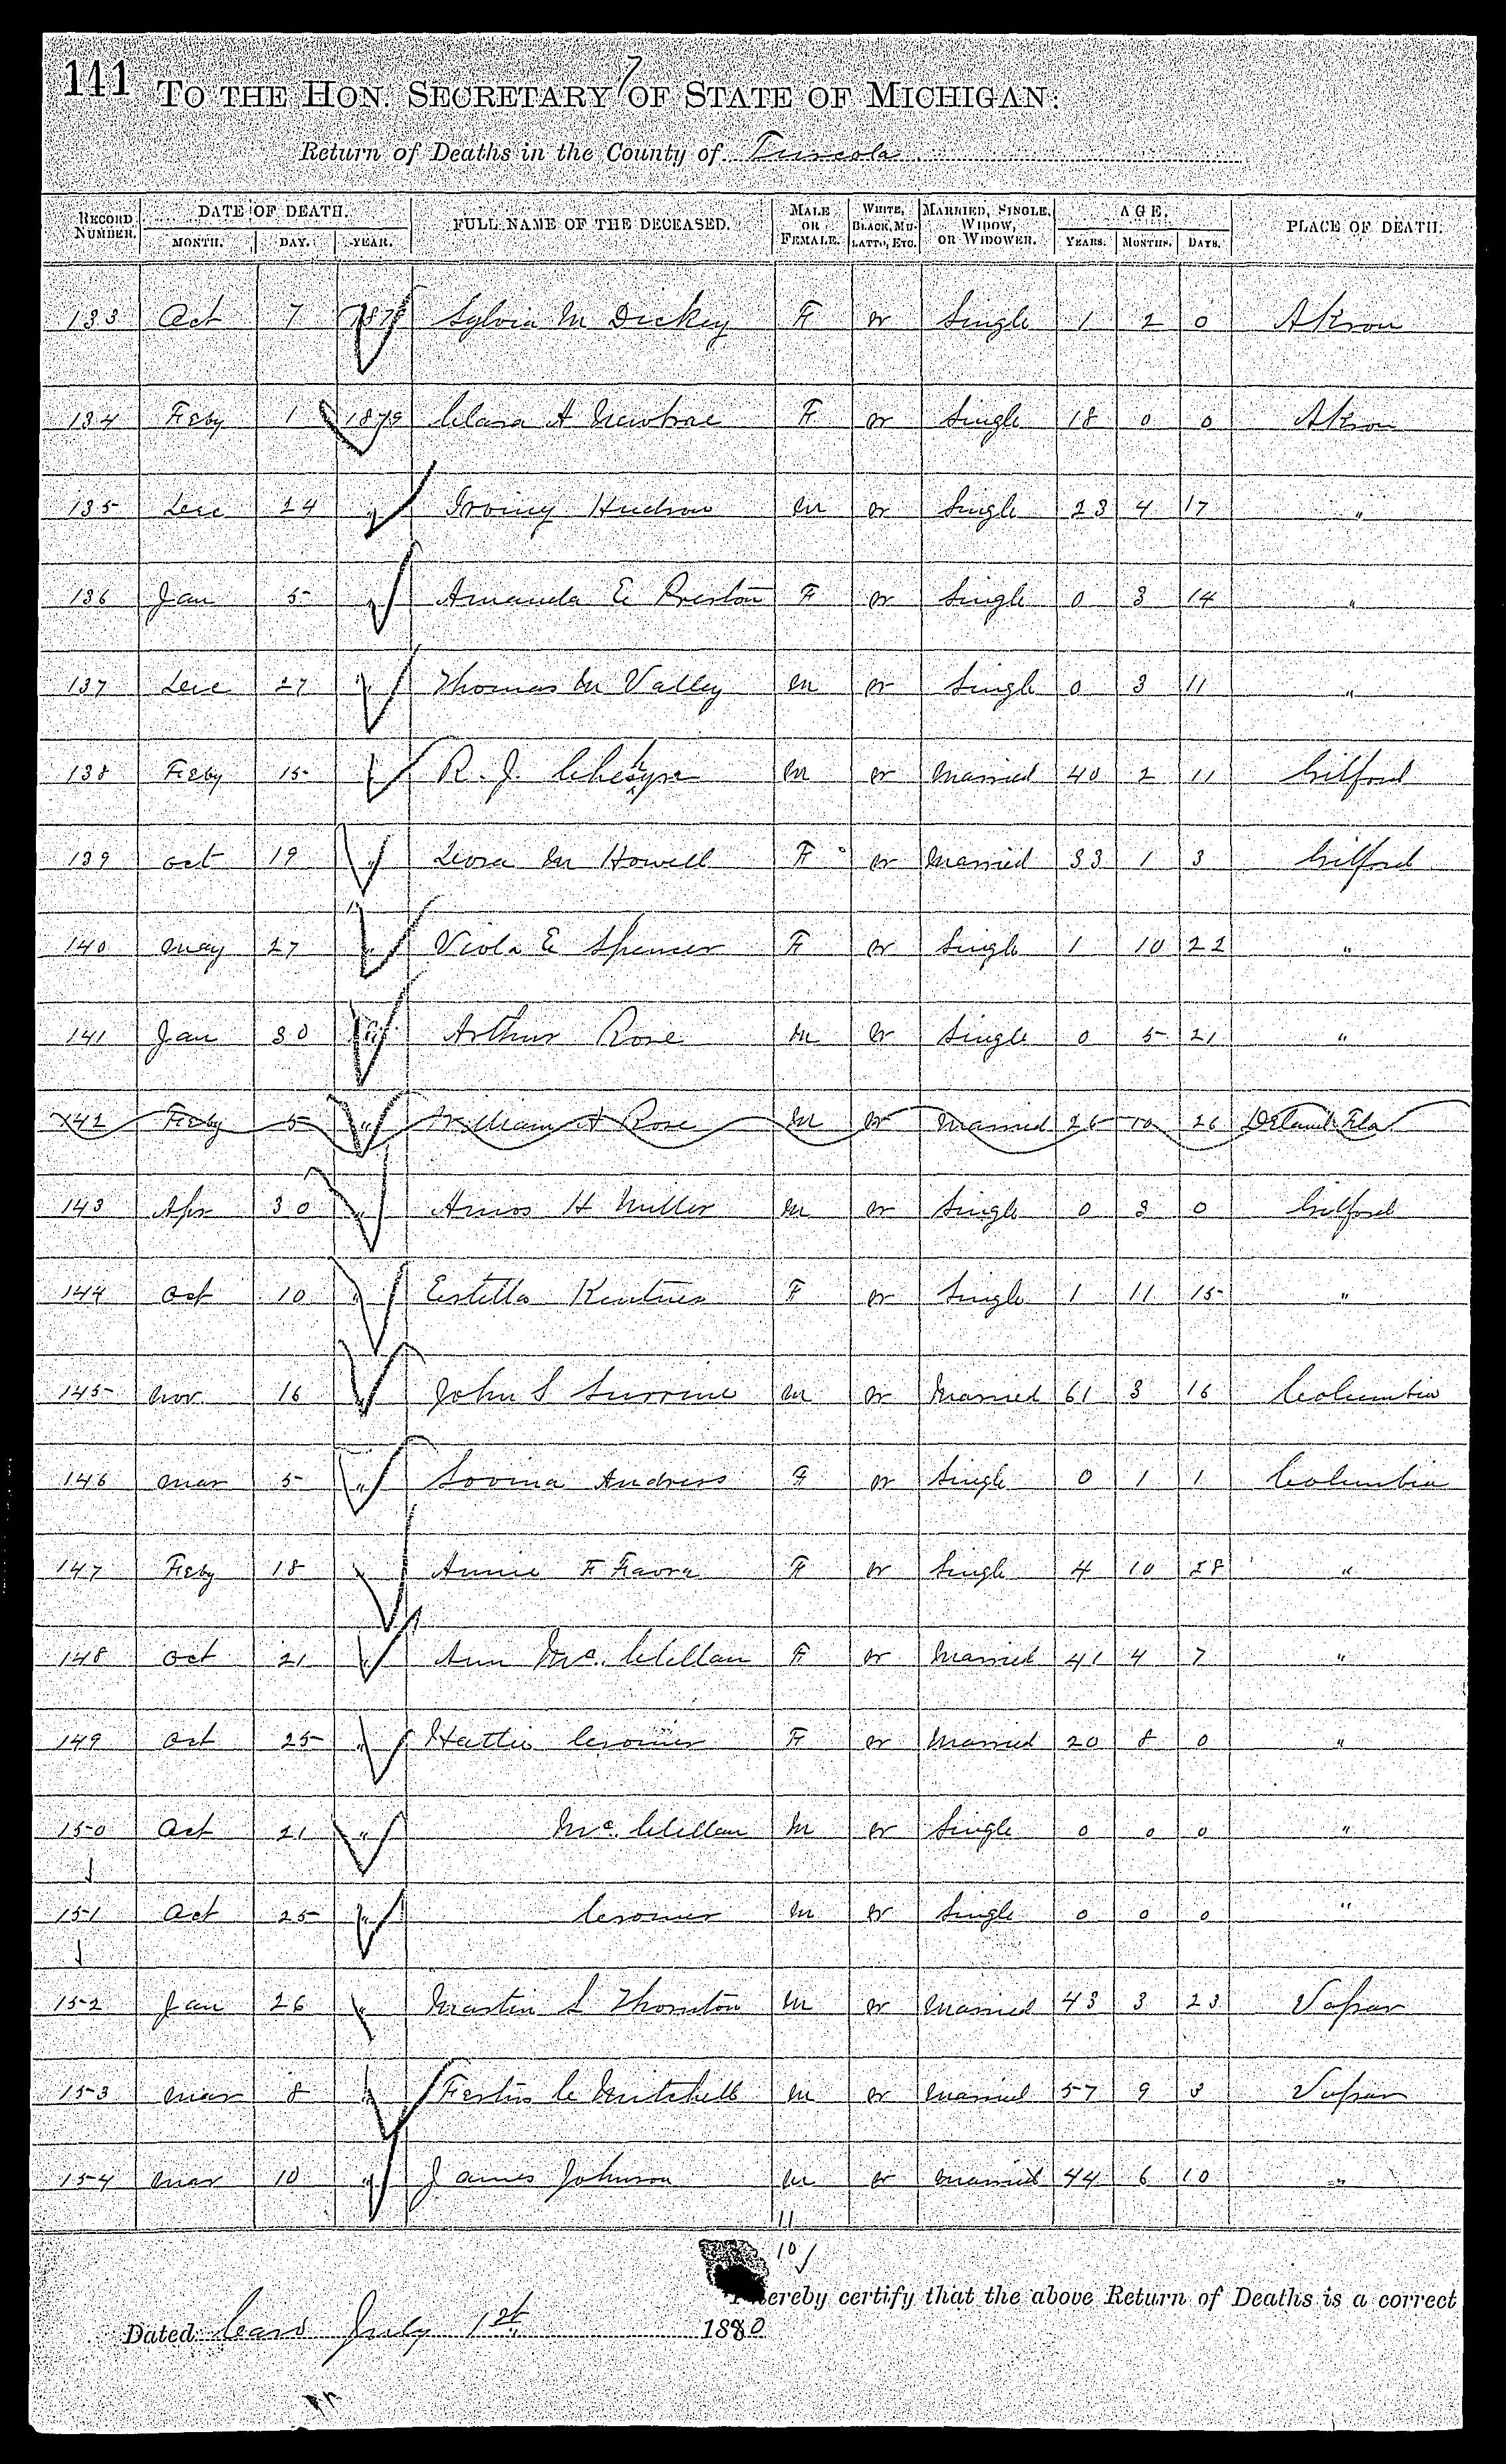 141 7
TO THE HON. SECRETARY OF STATE OF MICHIGAN:
Return of Deaths in the County of Tuscola
RECORD NUMBER. DATE OF DEATH. MONTH. DAY. YEAR. FULL NAME OF THE DECEASED. MALE OR FEMALE. WHITE, BLACK, MULATTO, ETC. MARRIED, SINGLE, WIDOW, OR WIDOWER. AGE. YEARS. MONTHS. DAYS. PLACE OF DEATH.
133 Oct 7 187 Sylvia M Dickey F Single 1 2 0 Akron
134 Feby 1 1879 Clara A F Single 18 0 0 Akron
135 Dec 24 " Irving Hudson M Single 23 4 17 "
136 Jan 5 " Amanda E Preston F Single 0 3 14 "
137 Dec 27 " Thomas M Valley M Single 0 3 11 "
138 Feby 15 " R. J. Cheshyre M Married 40 2 11 Gilford
139 Oct 19 " Leora M Howell F Married 33 1 3 Gilford
140 May 27 " Viola E Spencer F Single 1 10 22 "
141 Jan 30 " Arthur Rose M Single 0 5 21 "
142 Feby 5 " William H Rose M Married 26 10 26 Deland Fla
143 Apr 30 " Amos H Miller M Single 0 3 0 Gilford
144 Oct 10 " Estella F Single 1 11 15 "
145 Nov. 16 " John S Surrine M Married 61 3 16 Columbia
146 Mar 5 " Lovina Andress F Single 0 1 1 Columbia
147 Feby 18 " Annie F Favra F Single 4 10 28 "
148 Oct 21 " Ann McClellan F Married 41 4 7 "
149 Oct 25 " Hattie F Married 20 8 0 "
150 Oct 21 " McClellan M Single 0 0 0 "
151 Oct 25 " M Single 0 0 0 "
152 Jan 26 " Martin L Thornton M Married 43 3 23 Vassar
153 Mar 8 " Festus C Mitchell M Married 57 9 3 Vassar
154 Mar 10 " James Johnson M Married 44 6 10 "
11
10
I hereby certify that the above Return of Deaths is a correct
Dated Caro July 1st 1880